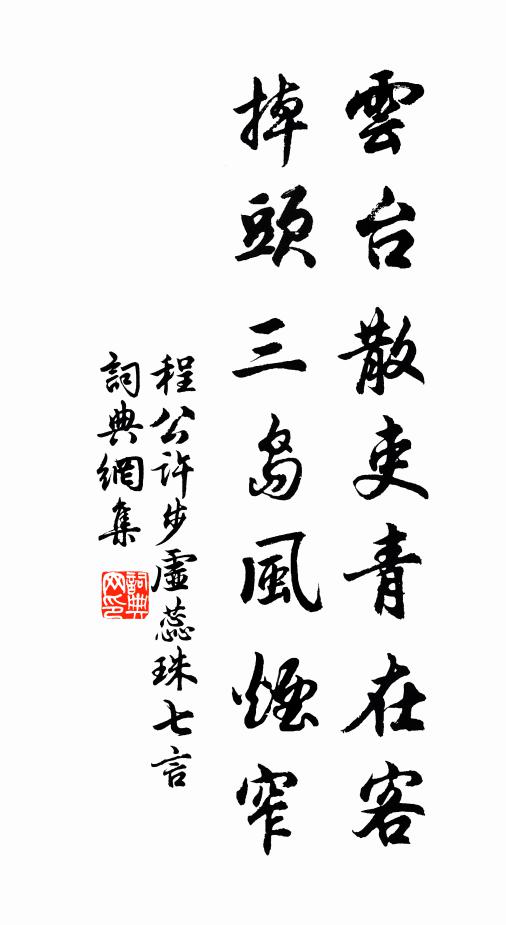 雲台散吏青在客
掉頭三島風煙窄
程公許步虛蕊珠七言
詞典網集
詞典網印